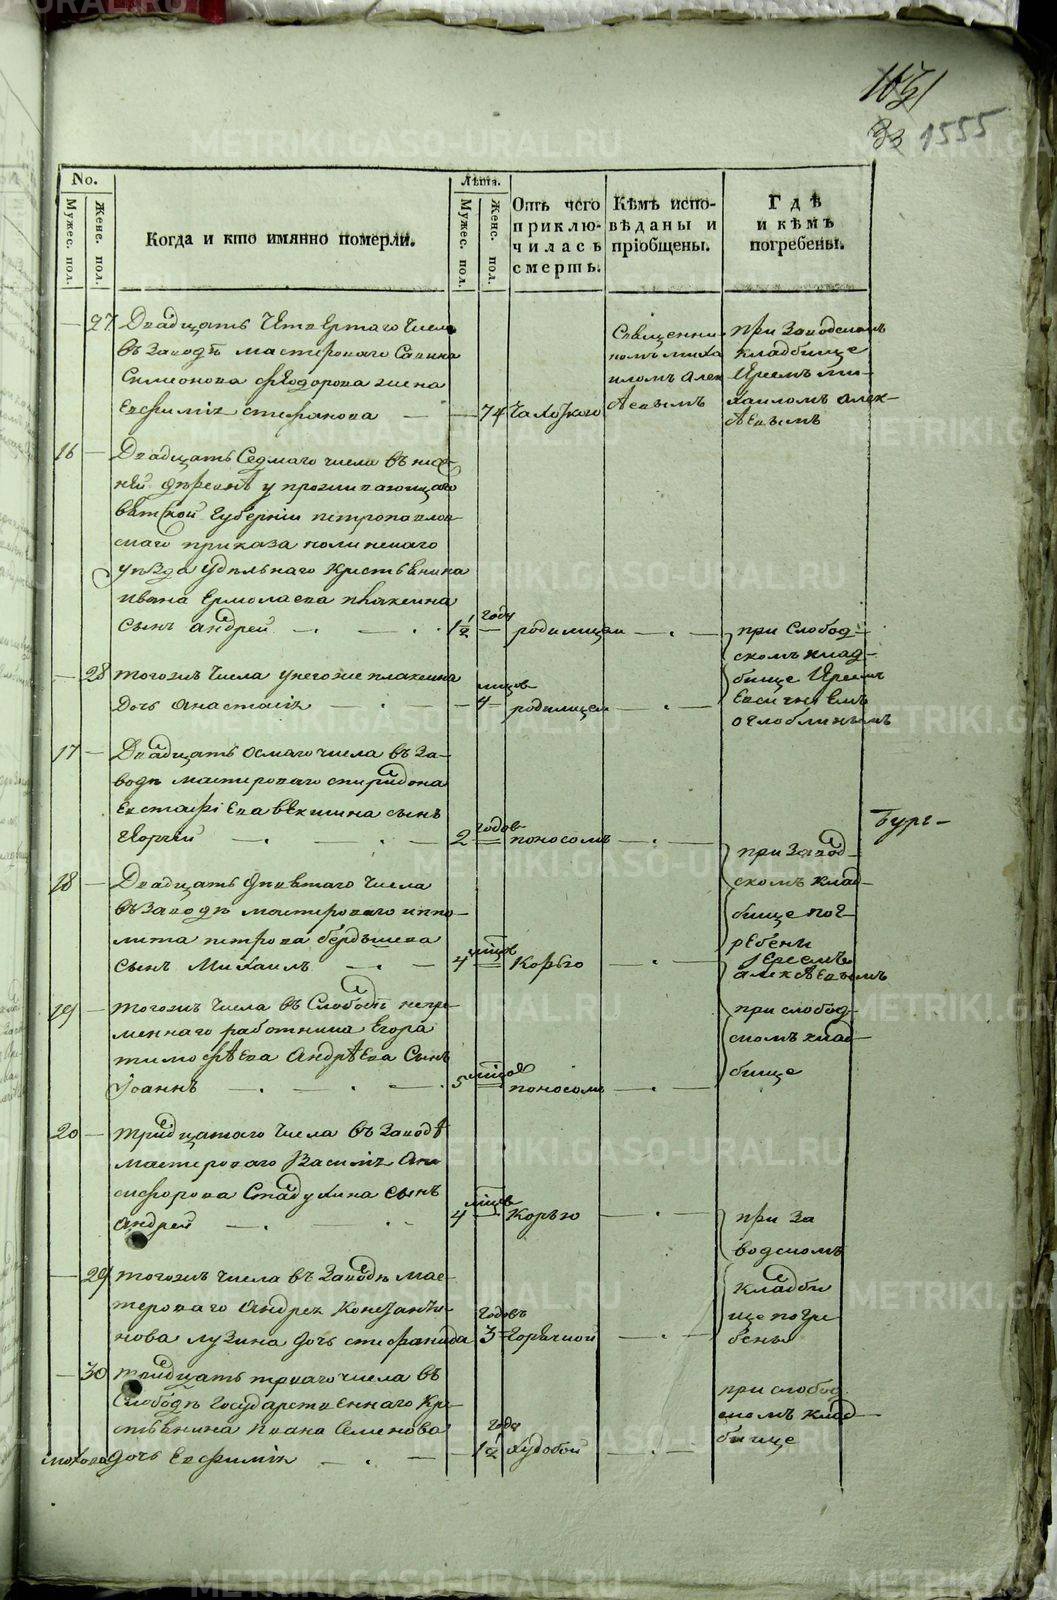 1555
No.
Лѣта.
Мужес. пол.
Женс. пол.
Когда и кто имянно померли.
Мужес. пол.
Женс. пол.
Отъ чего приклю-
чилась смерть.
Кѣмъ испо-
вѣданы и
пріобщены.
Гдѣ
и кѣмъ
погребены.
27 Двадцать четвертаго числа
въ заводѣ мастероваго Савина
Симеонова Фѣодорова жена
Евфимія Стефанова 74 чахоткою
Священни-
комъ Миха
иломъ Алек
сѣевымъ
при заводскомъ
кладбище
Іереемъ Ми-
хаиломъ Алек-
сѣевымъ
16 Двадцать седмаго числа въ
деревнѣ у проживающаго
Вятской губерніи Петропавлов
скаго приказа
уѣзда удѣльнаго крестьянина
Ивана Ермолаева
сынъ Андрей 1½ году родимцемъ
при слобод-
скомъ клад-
бище Іереемъ
Евсигніемъ
Оглоблинымъ
28 тогожъ числа у негоже
дочь Анастасія 4 мѣцов родимцемъ
17 Двадцать осмаго числа въ за-
водѣ мастероваго Спиридона
Евстафіева Векшина сынъ
Георгій 2 годов поносомъ
18 Двадцать девятаго числа
въ заводѣ мастероваго Иппо-
лита Петрова Бердышева
сынъ Михаилъ 4 мѣцов корью
при завод-
скомъ клад-
бище пог-
ребены
Іереемъ
Алексѣевымъ
19 тогожъ числа въ слободѣ непре-
меннаго работника Егора
Тимофѣева Андрѣева сынъ
Іоаннъ 5 мѣцов поносомъ
при слобод-
скомъ клад-
бище
20 тридцатаго числа въ заводѣ
мастероваго Василія
Стадухина сынъ
Андрей 4 мѣцов корью
при за
водскомъ
29 тогожъ числа въ заводѣ мас-
тероваго Андрея Константи-
нова Лузина дочь Стефанида 3 годовъ горячкой
кладби
ще погре
бены
30 тридцать перваго числа въ
слободѣ государственнаго кре-
стьянина Ивана Семенова
дочь Евфимія 1½ года худобой
при слобод
скомъ клад
бище
METRIKI.GASO-URAL.RU